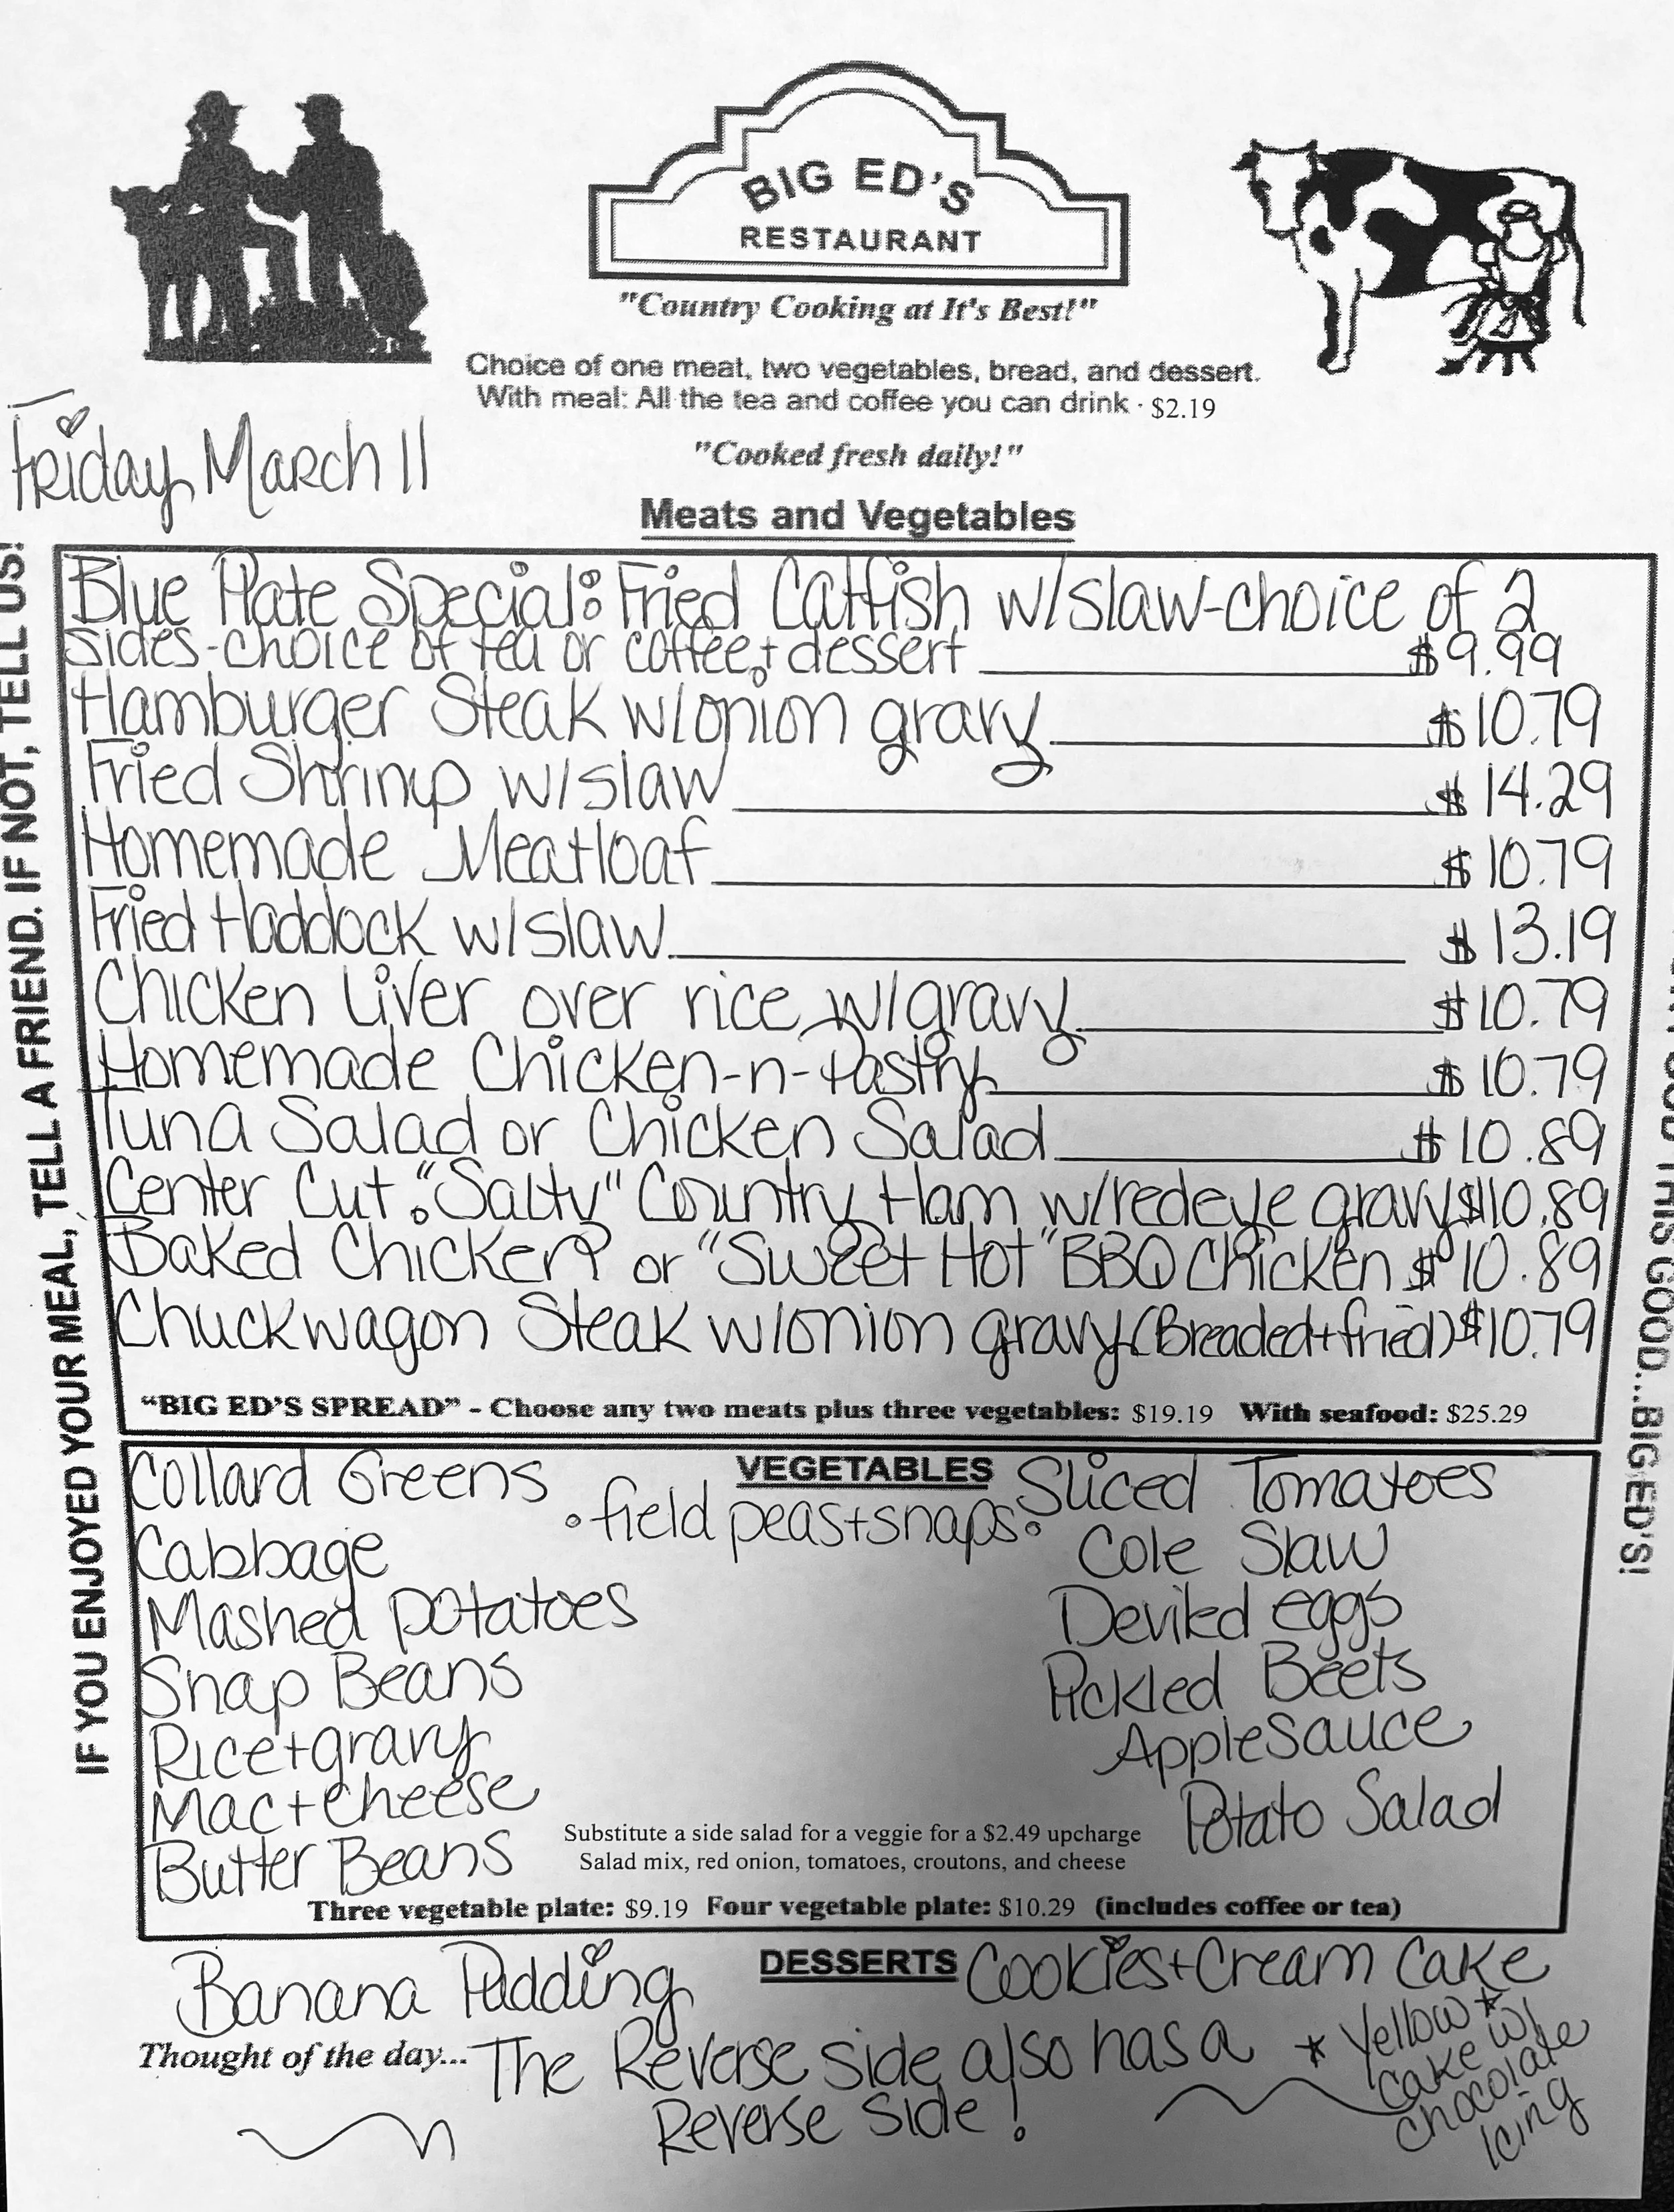 BIG ED'S
RESTAURANT
"Country Cooking at It's Best!"
Choice of one meat, two vegetables, bread, and dessert.
With meal: All the tea and coffee you can drink · $2.19
"Cooked fresh daily!"
Friday, March 11
Meats and Vegetables
Blue Plate Special: Fried Catfish w/slaw-choice of 2
sides-choice of tea or coffee + dessert $9.99
Hamburger Steak w/onion gravy $10.79
Fried Shrimp w/slaw $14.29
Homemade Meatloaf $10.79
Fried Haddock w/slaw $13.19
Chicken Liver over rice w/gravy $10.79
Homemade Chicken-n-Pastry $10.79
Tuna Salad or Chicken Salad $10.89
Center Cut "Salty" Country Ham w/redeye gravy $10.89
Baked Chicken or "Sweet Hot" BBQ Chicken $10.89
Chuckwagon Steak w/onion gravy (Breaded+fried) $10.79
"BIG ED'S SPREAD" - Choose any two meats plus three vegetables: $19.19 With seafood: $25.29
VEGETABLES
Collard Greens
Cabbage
Mashed Potatoes
Snap Beans
Rice+gravy
Mac+Cheese
Butter Beans
•field peas+snaps•
Sliced Tomatoes
Cole Slaw
Deviled eggs
Pickled Beets
AppleSauce
Potato Salad
Substitute a side salad for a veggie for a $2.49 upcharge
Salad mix, red onion, tomatoes, croutons, and cheese
Three vegetable plate: $9.19 Four vegetable plate: $10.29 (includes coffee or tea)
DESSERTS
Banana Pudding
Cookies+Cream Cake
* Yellow *
Cake w/
chocolate
Icing
Thought of the day... The Reverse side also has a
Reverse Side!
IF YOU ENJOYED YOUR MEAL, TELL A FRIEND. IF NOT, TELL US!
THIS GOOD...BIG ED'S!